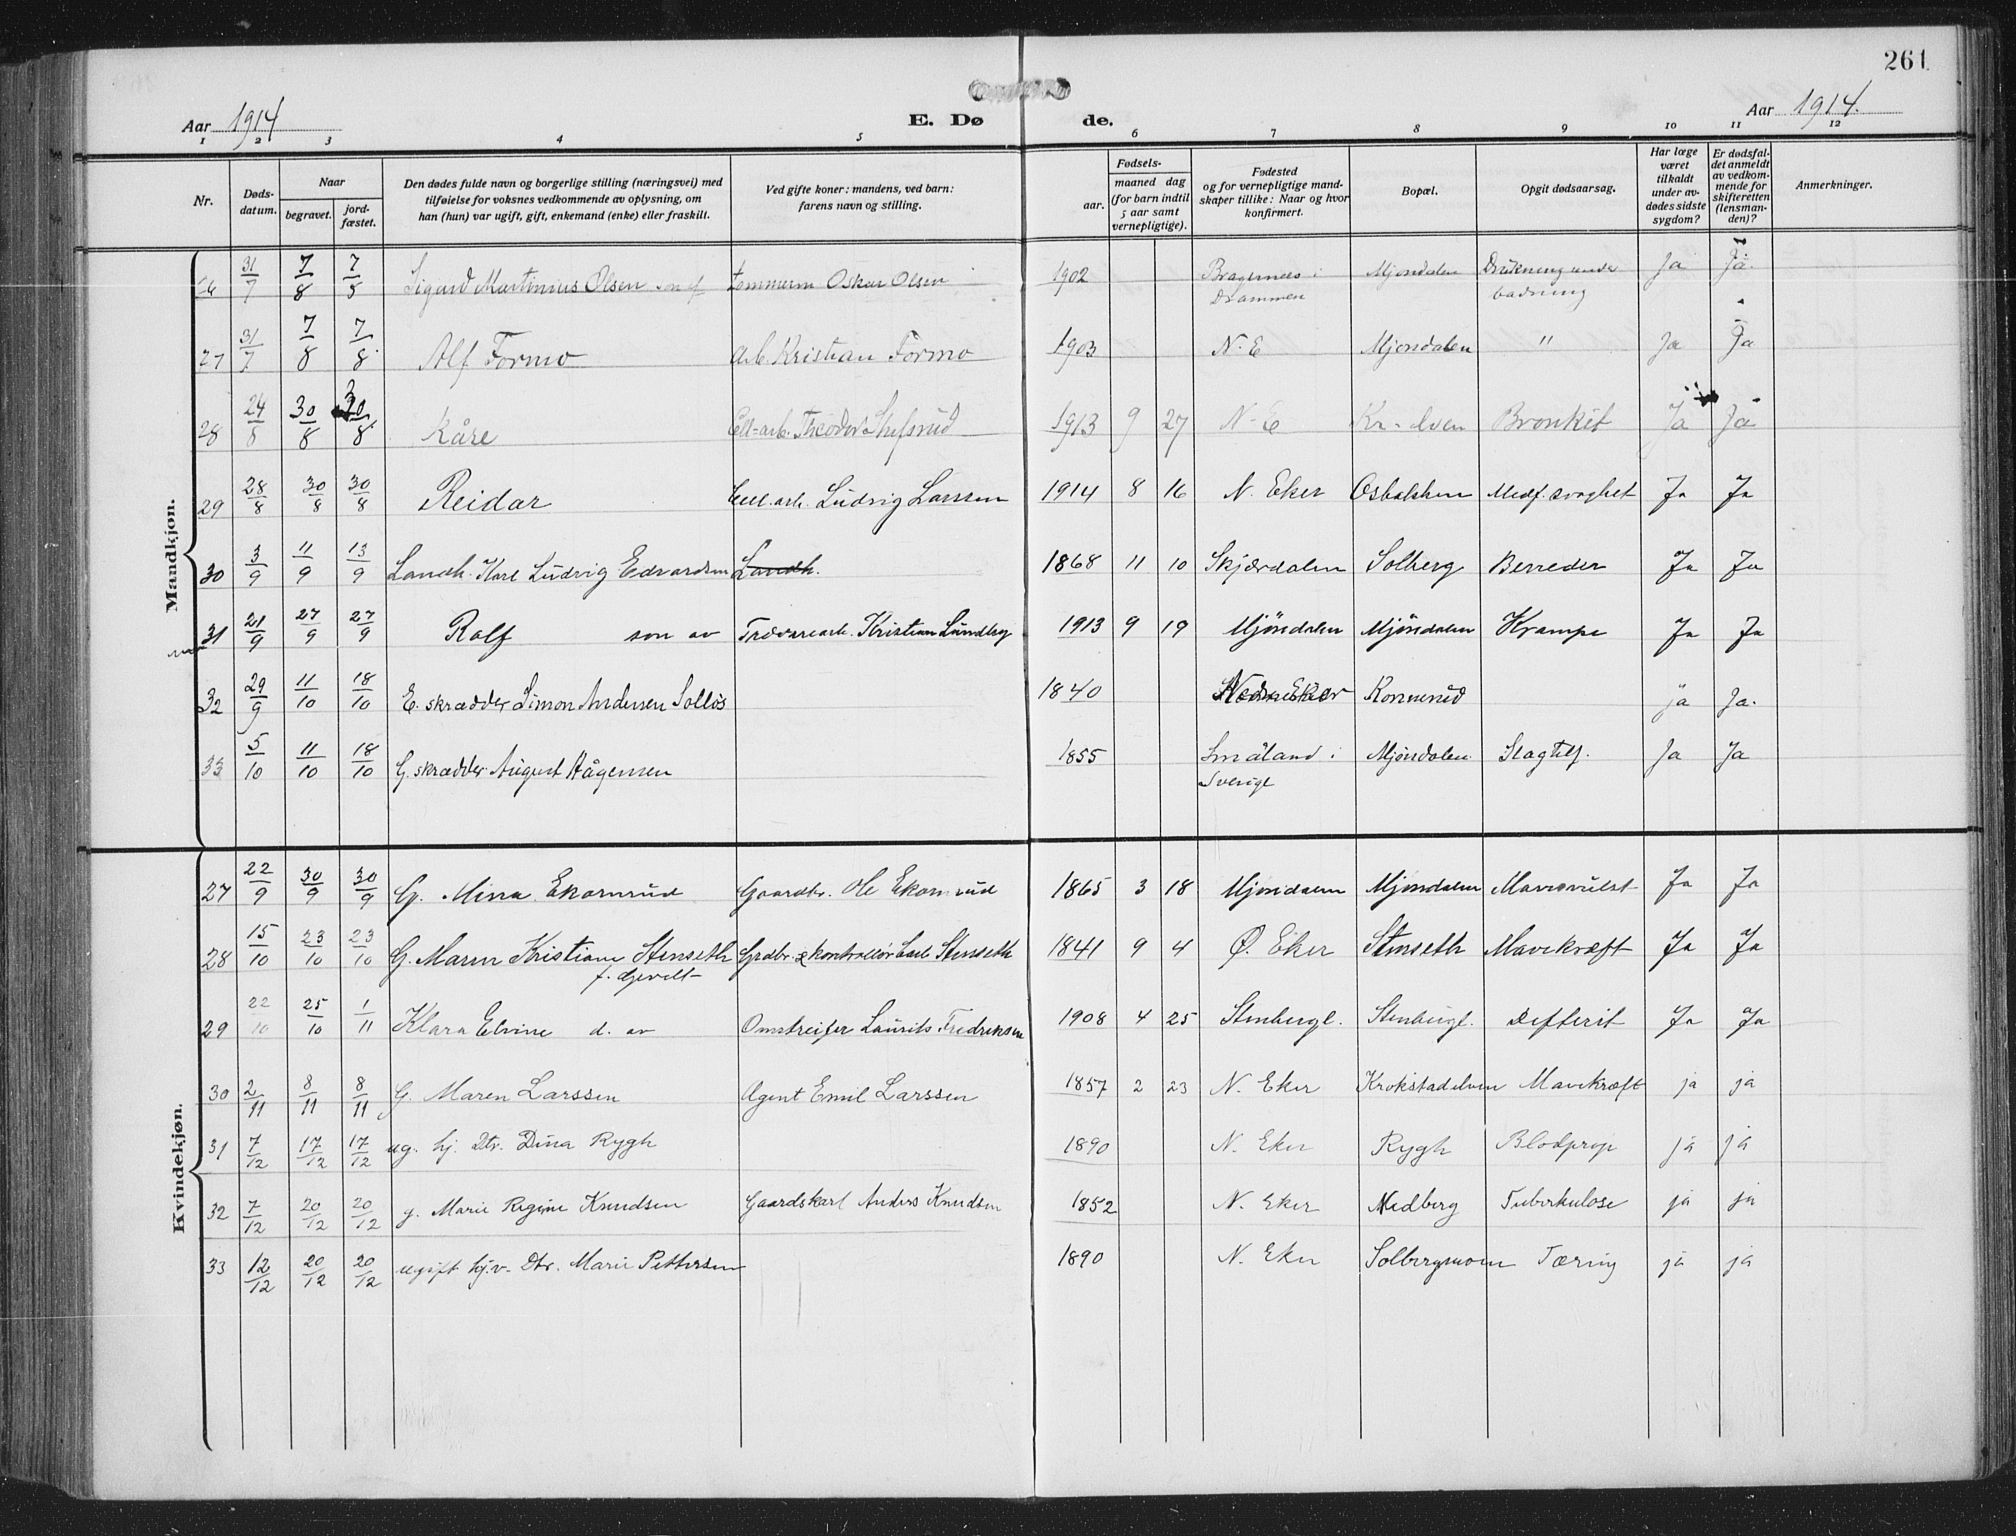 261
Aar 1914
E. Dø de.
Aar 1914.
1 2 3 4 5 6 7 8 9 10 11 12
Nr.
Døds-datum.
Naar
begravet.
jord-fæstet.
Den dødes fulde navn og borgerlige stilling (næringsvei) med tilføielse for voksnes vedkommende av oplysning, om han (hun) var ugift, gift, enkemand (enke) eller fraskill.
Ved gifte koner: mandens, ved barn: farens navn og stilling.
Fødsels-
aar.
maaned dag
(for barn indtil 5 aar samt vernepligtige).
Fødested og for vernepligtige mand-skaper tillike: Naar og hvor konfirmert.
Bopæl.
Opgit dødsaarsag.
Har læge været tilkaldt under av-dødes sidste sygdom?
Er dødsfal-det anmeldt av vedkom-mende for skifteretten (lensman-den)?
Anmerkninger.
Mandkjøn.
31/7 7/8 7/5 Sigurd Martinius Olsen son af tømmerm Oskar Olsen 1902 Bragernes i Drammen Mjøndalen Drukning under badning Ja Ja.
27 31/7 7/8 7/8 Alf Formo Arb. Kristian Formo 1903 N. E Mjøndalen " Ja Ja
28 24/8 30/8 30/8 Kåre Cell-arb. Theodor 1913 9 27 N-E Kr-elven Bronkit Ja Ja
29 28/8 30/8 30/8 Reidar Cell. arb. Ludvig Larssen 1914 8 16 N. Eker Medf. svaghet Ja Ja
30 3/9 11/9 13/9 Landh. Karl Ludvig Edvardsen Landh. 1868 11 10 Skjærdalen Solberg Ja Ja
31 21/9 27/9 27/9 Rolf son av Trævarearb. Kristian Lundbg 1913 9 19 Mjöndalen Mjöndalen Krampe Ja Ja
32 29/9 11/10 18/10 E. skrædder Simon Andersen Solløs 1840 Nedre Eker Konnerud ja Ja.
33 5/10 11/10 18/10 G. skrædder August Hågensen 1855 Småland i Sverige Mjøndalen Slagtilf. Ja Ja
Kvindekjøn.
27 22/9 30/9 30/9 G. Mina Ekornrud Gaardbr. Ole Ekornrud 1865 3 18 Mjøndalen Mjøndalen Mavesvulst Ja Ja
28 15/10 23/10 23/10 G. Maren Kristiane Stenseth f. Gevelt Grdbr. & kontrollør Carl Stenseth 1841 9 4 Ø. Eker Stenseth Mavekræft Ja Ja
29 22/10 25/10 1/11 Klara Elvine d. av Omstreifer Laurits Fredriksen 1908 4 25 Stenbergl. Stenbergl. Defterit Ja Ja
30 2/11 8/11 8/11 G. Maren Larssen Agent Emil Larssen 1857 2 23 N. Eker Krokstadelven Mavekræft ja ja
31 7/12 17/12 17/12 ug. hj. Dtr. Dina Rygh 1890 N. Eker Rygh Blodprop ja ja
32 7/12 20/12 20/12 g. Marie Regine Knudsen Gaardskarl Anders Knudsen 1852 N. Eker Medberg Tuberkulose ja ja
33 12/12 20/12 20/12 ugift hj.v. Dtr. Marie Pettersen 1890 N. Eker Solbergmoen Tæring ja ja